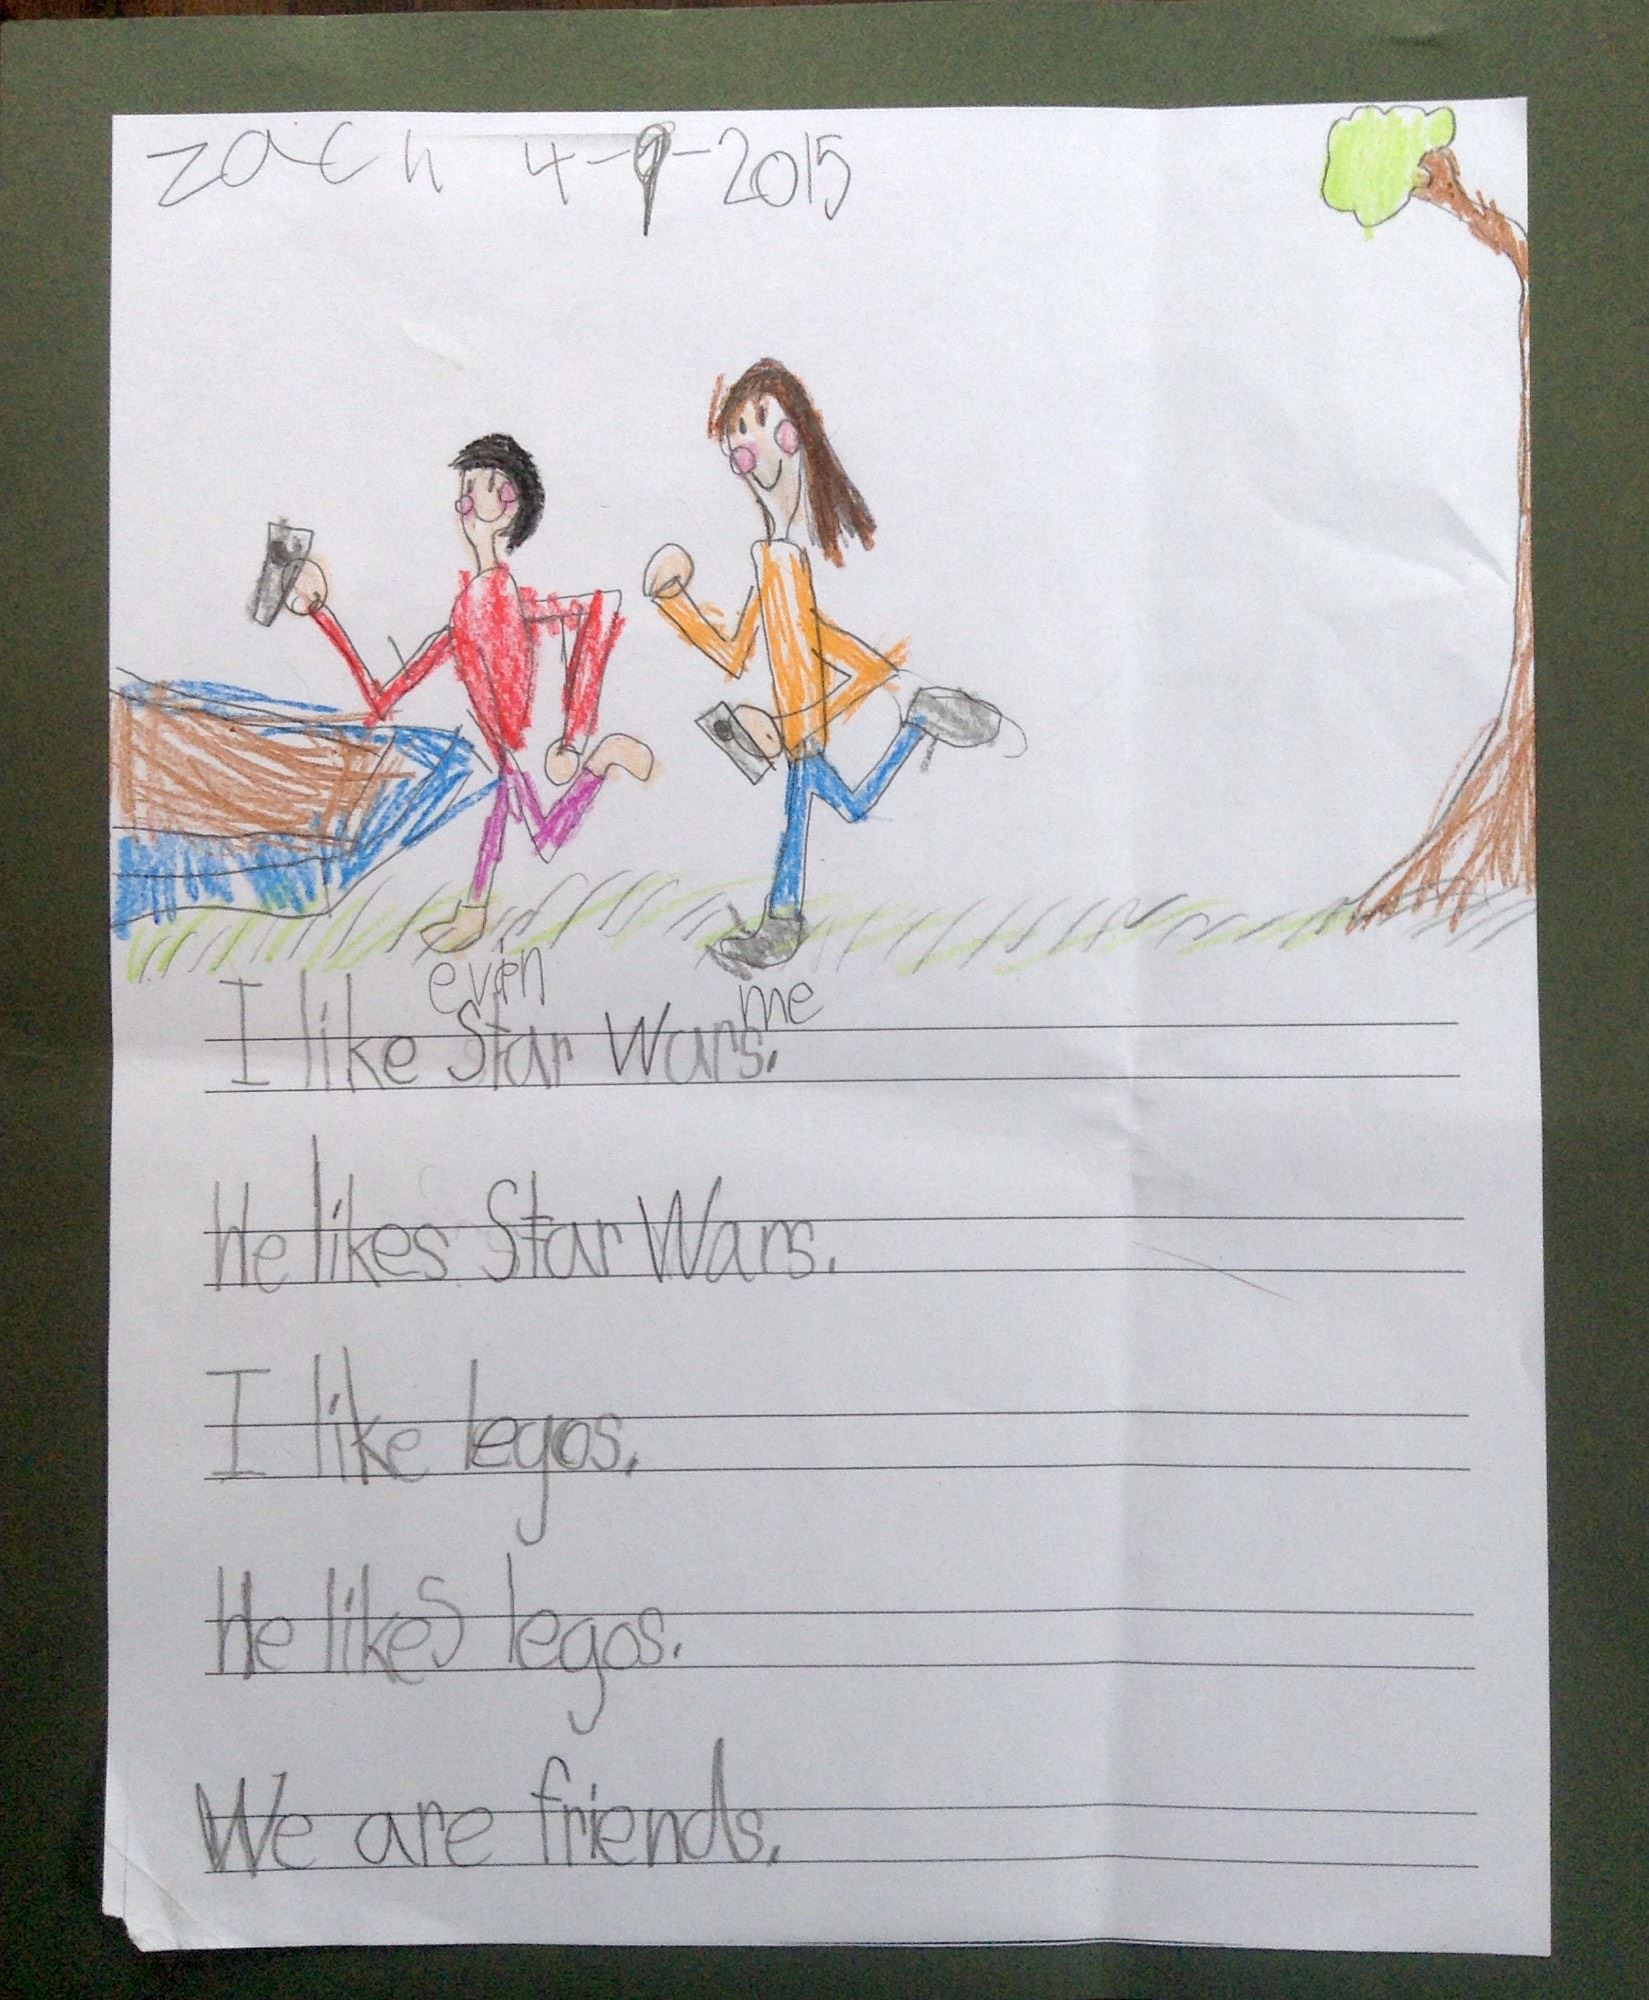 Zach 4-9-2015
evin me
I like Star Wars.
He likes Star Wars.
I like legos.
He likes legos.
We are friends.